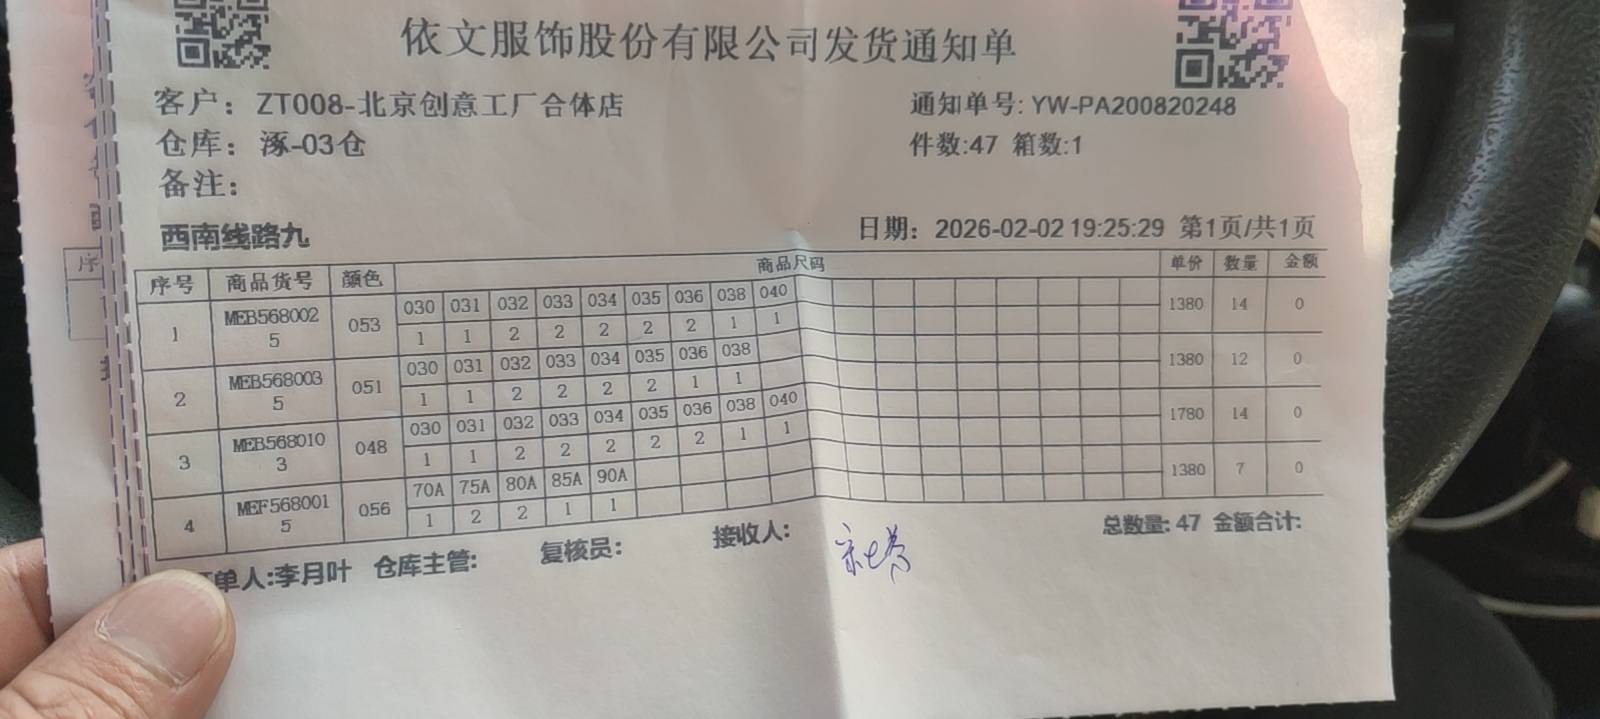 依文服饰股份有限公司发货通知单
客户：ZT008-北京创意工厂合体店 通知单号: YW-PA200820248
仓库：涿-03仓 件数:47 箱数:1
备注：
西南线路九 日期：2026-02-02 19:25:29 第1页/共1页
序号 商品货号 颜色 商品尺码 单价 数量 金额
1 MEB5680025 053 030 031 032 033 034 035 036 038 040 1380 14 0
1 1 2 2 2 2 2 1 1
2 MEB5680035 051 030 031 032 033 034 035 036 038 1380 12 0
1 1 2 2 2 2 1 1
3 MEB5680103 048 030 031 032 033 034 035 036 038 040 1780 14 0
1 1 2 2 2 2 2 1 1
4 MEF5680015 056 70A 75A 80A 85A 90A 1380 7 0
1 2 2 1 1
单人:李月叶 仓库主管: 复核员: 接收人: 总数量: 47 金额合计: